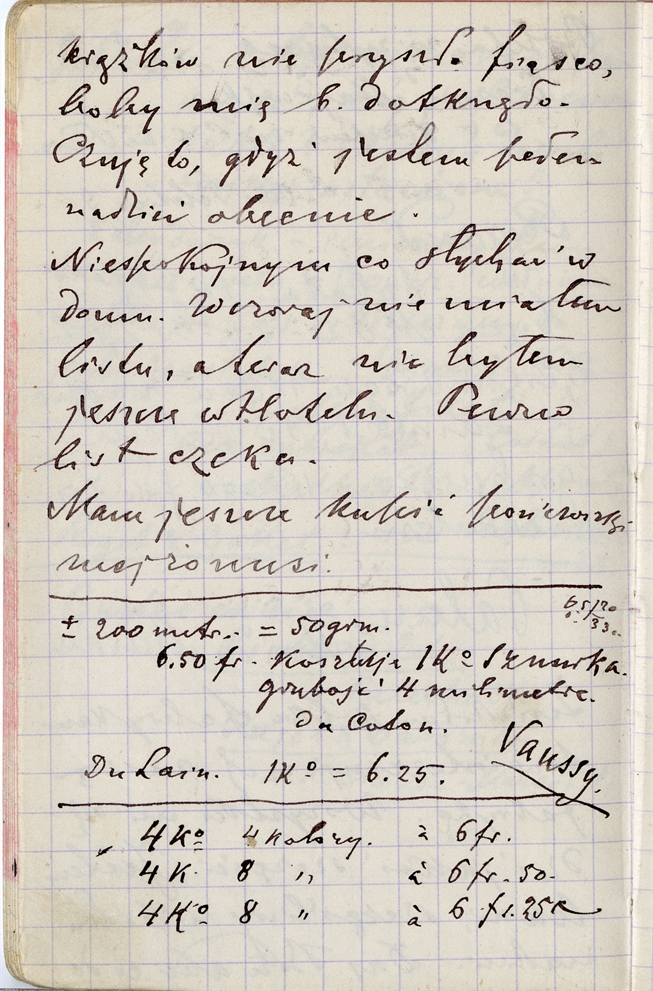 krążków nie przyszło fiasco,
boby mię b. dotknęło.
Czuję to, gdyż jestem peden
nadziei obecnie.
Niespokojnym co słychać w
domu. Wczoraj nie miałem
listu, a teraz nie byłem
jeszcze w Hotelu. Pewno
list czeka.
Mam jeszcze kupić pończoszki
mej żonusi.
± 200 metr. = 50 grm.
6.50 fr. kosztuje 1Kº Sznurka.
grubość 4 milimetre.
du Coton.
Vaussy.
Du Lain. 1Kº = 6.25.
„ 4Kº 4 kolory. à 6 fr.
4K. 8 „ à 6 fr. 50.
4Kº 8 „ à 6 fr. 25